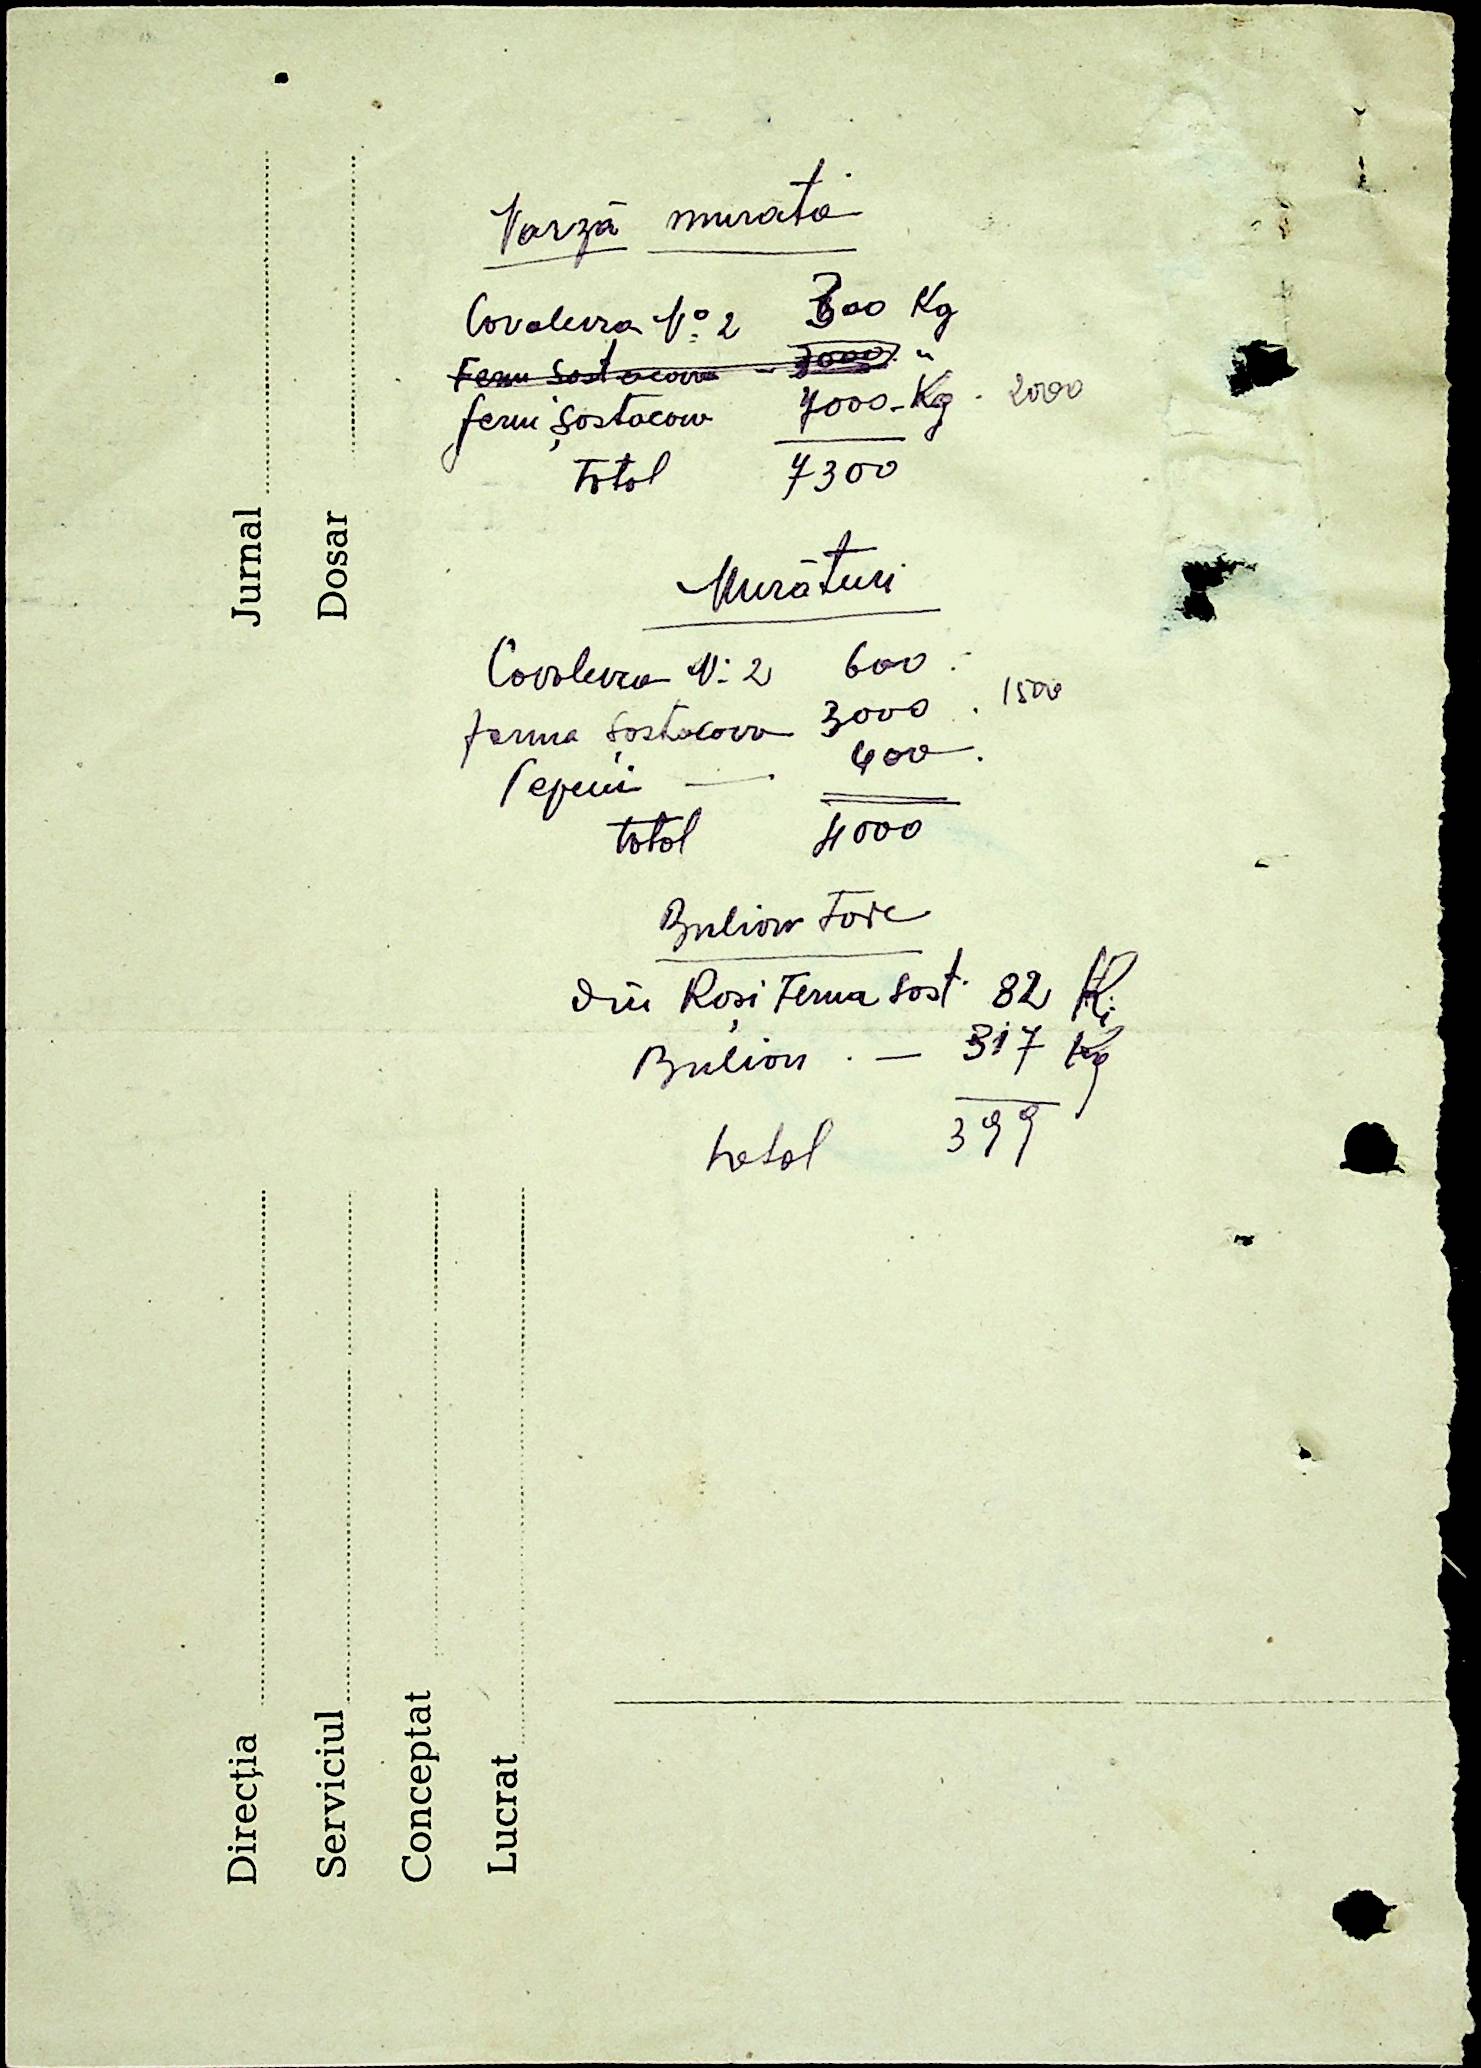 Varză murată
Covaleuca No 2 300 Kg
Fermi Șostacova - 3000 "
fermi Șostacova 7000 - Kg. 2000
Total 7300
Murături
Covaleuca N: 2 600
ferma Șostacova 3000 . 1500
Pepeni — 400
total 4000
Bulion
din Roși Ferma Șost. 82 K
Bulion . — 317 Kg
total 399
Jurnal
Dosar
Direcția
Serviciul
Conceptat
Lucrat